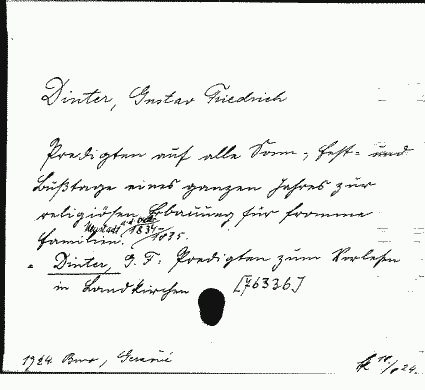 Dinter, Gustav Friedrich
Predigten auf alle Sonn-, Fest- und
Bußtage eines ganzen Jahres zur
religiösen Erbauung für fromme
Neustadt a.d. Orla 1834-
Familien. 1835.
= Dinter, G. F.: Predigten zum Vorlesen
in Landkirchen [76336]
1924.